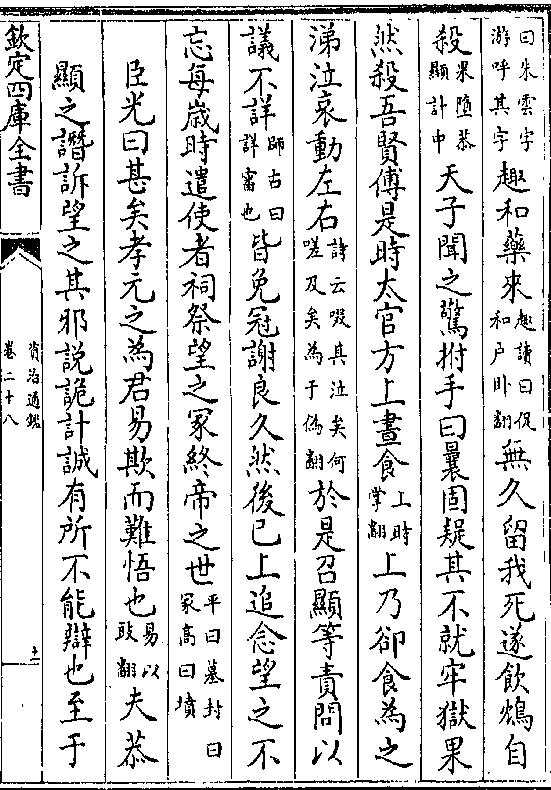 曰朱雲字游呼其字趣和藥來趣讀曰促和户卧翻無久留我死遂飲鴆自
殺果墮恭顯計中天子聞之驚拊手曰曩固疑其不就牢獄果
然殺吾賢傅是時太官方上晝食上時掌翻上乃卻食為之
涕泣哀動左右詩云啜其泣矣何嗟及矣為于偽翻於是召顯等責問以
議不詳師古曰詳審也皆免冠謝良久然後已上追念望之不
忘每歲時遣使者祠祭望之冢終帝之世平曰墓封曰冢高曰墳
臣光曰甚矣孝元之為君易欺而難悟也易以豉翻夫恭
顯之譖訴望之其邪說詭計誠有所不能辯也至于
欽定四庫全書
資治通鑑
卷二十八
十一